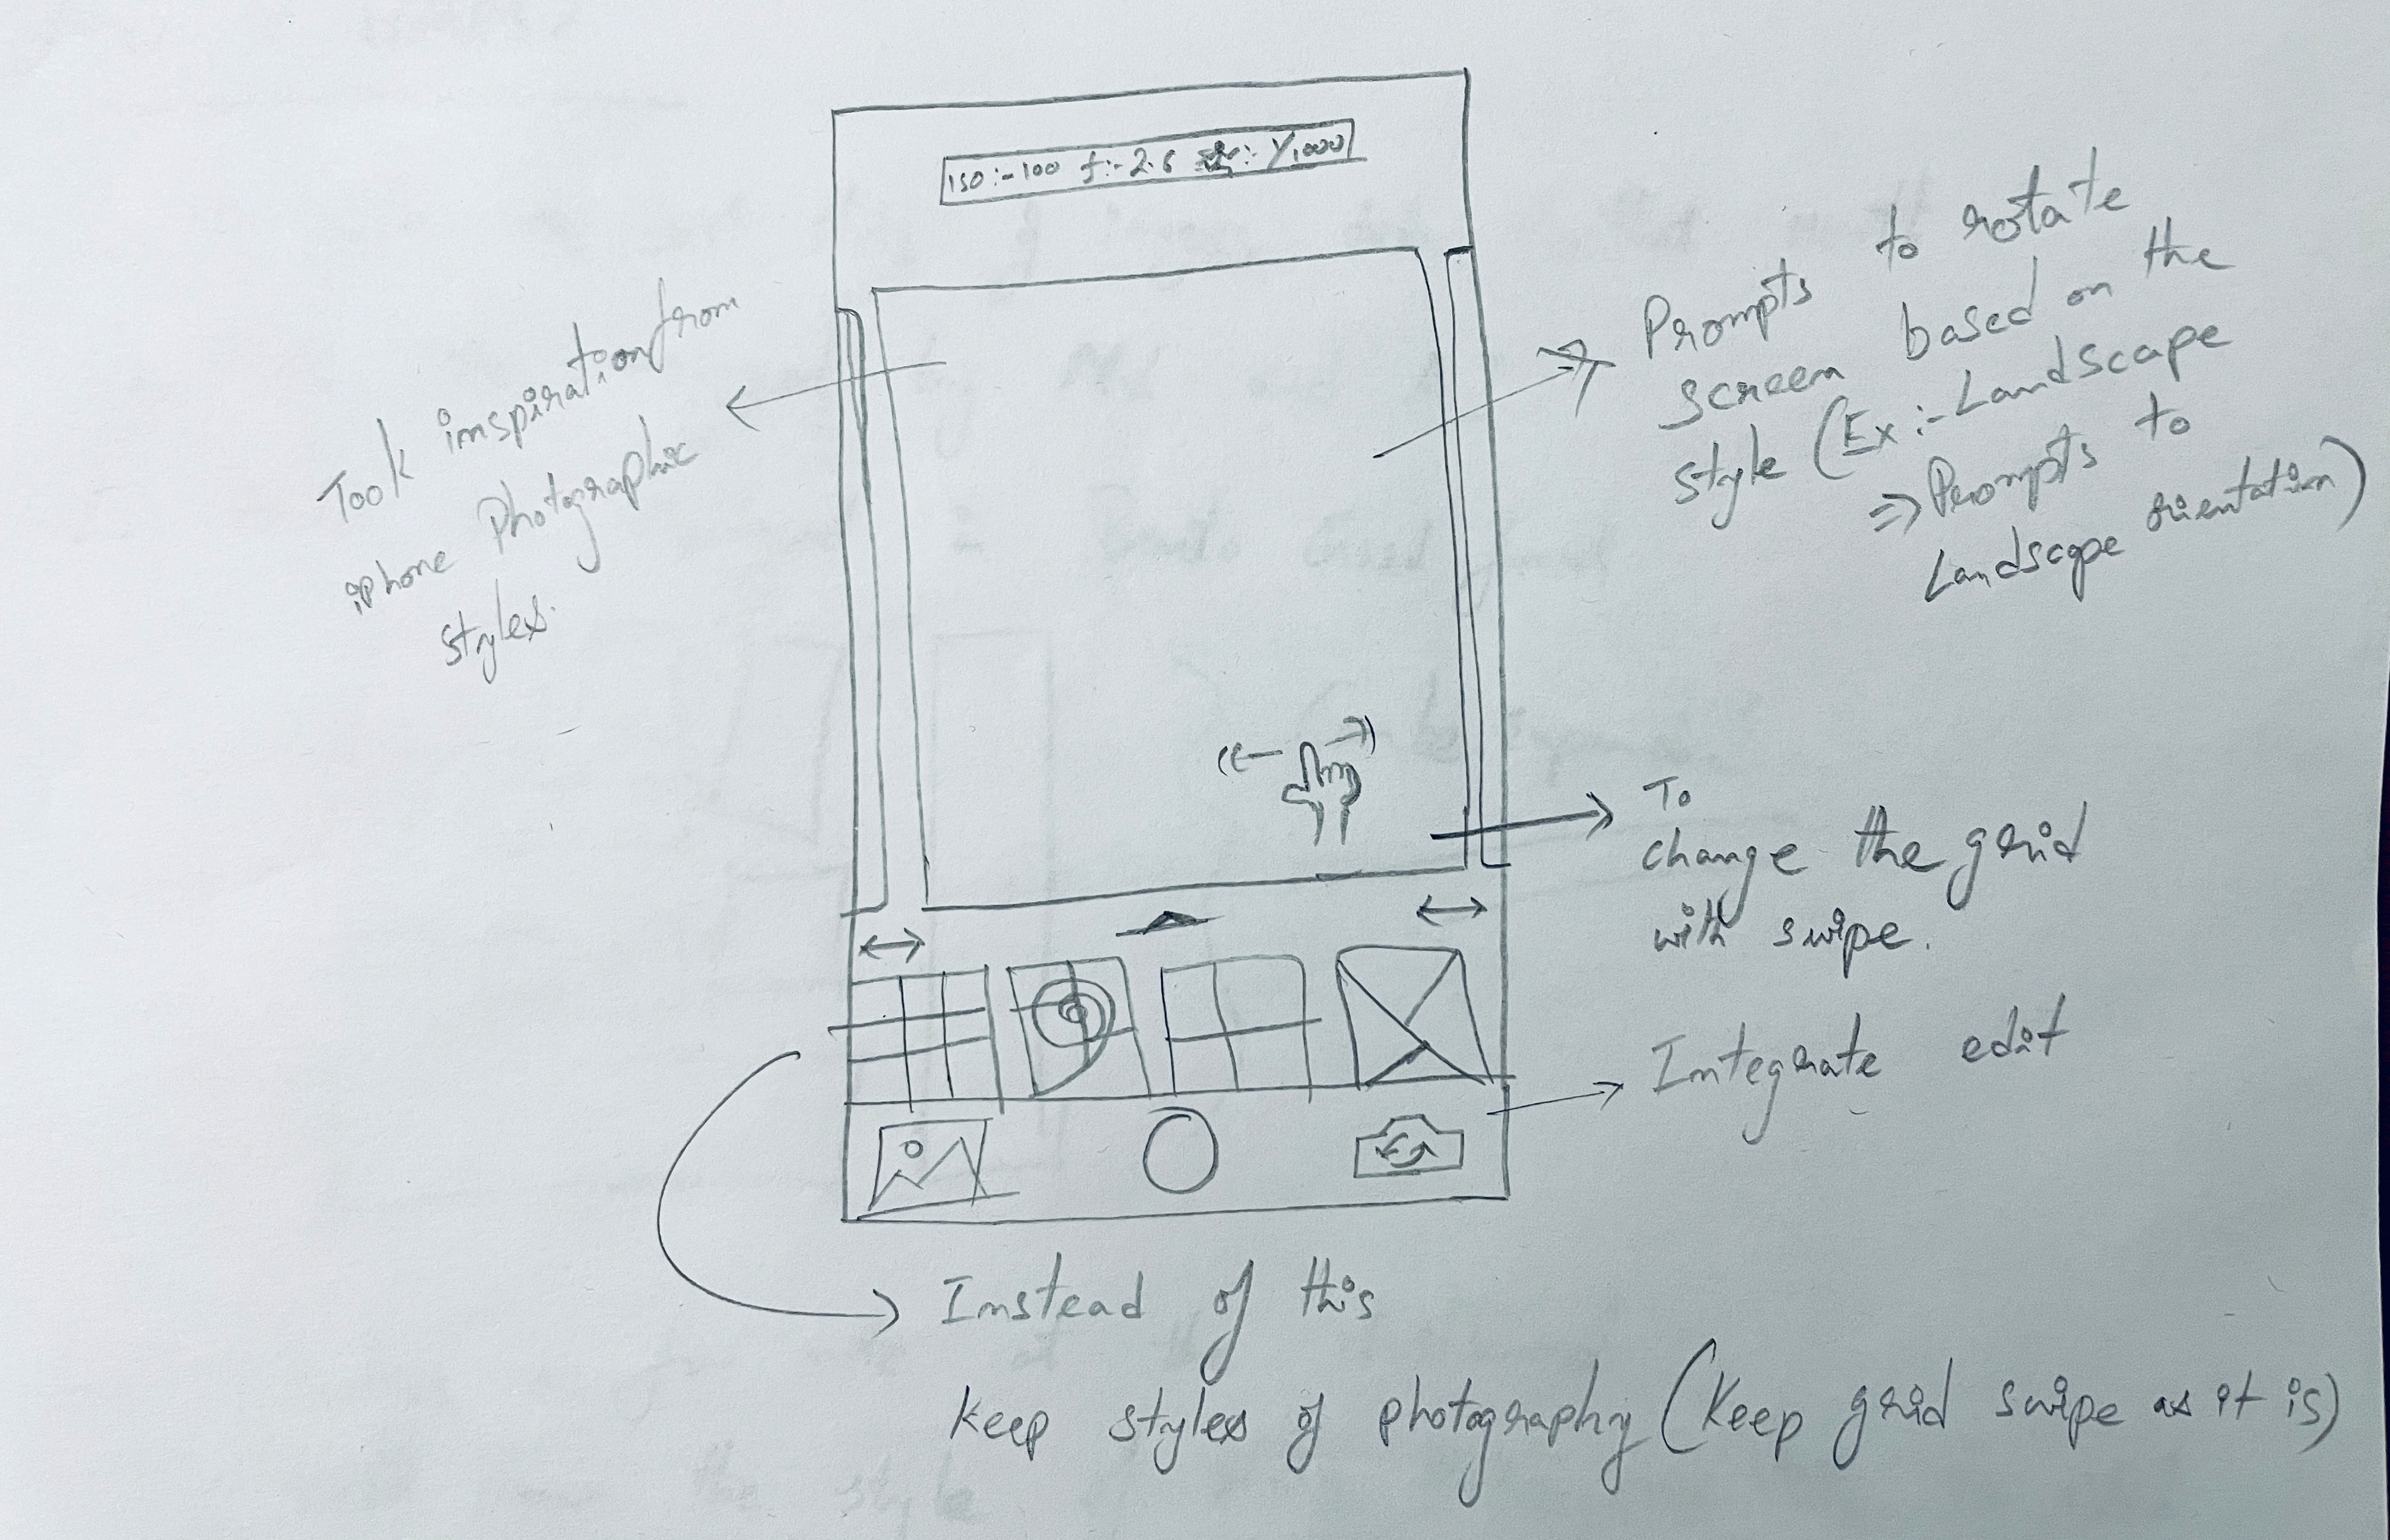 ISO :- 100 f :- 2.8 :- 1/1000
Took inspiration from
iphone Photographic
styles.
Prompts to rotate
screen based on the
style (Ex :- Landscape
⇒ Prompts to
Landscape orientation)
To
change the grid
with swipe.
Integrate edit
Instead of this
Keep styles of photography (Keep grid swipe as it is)